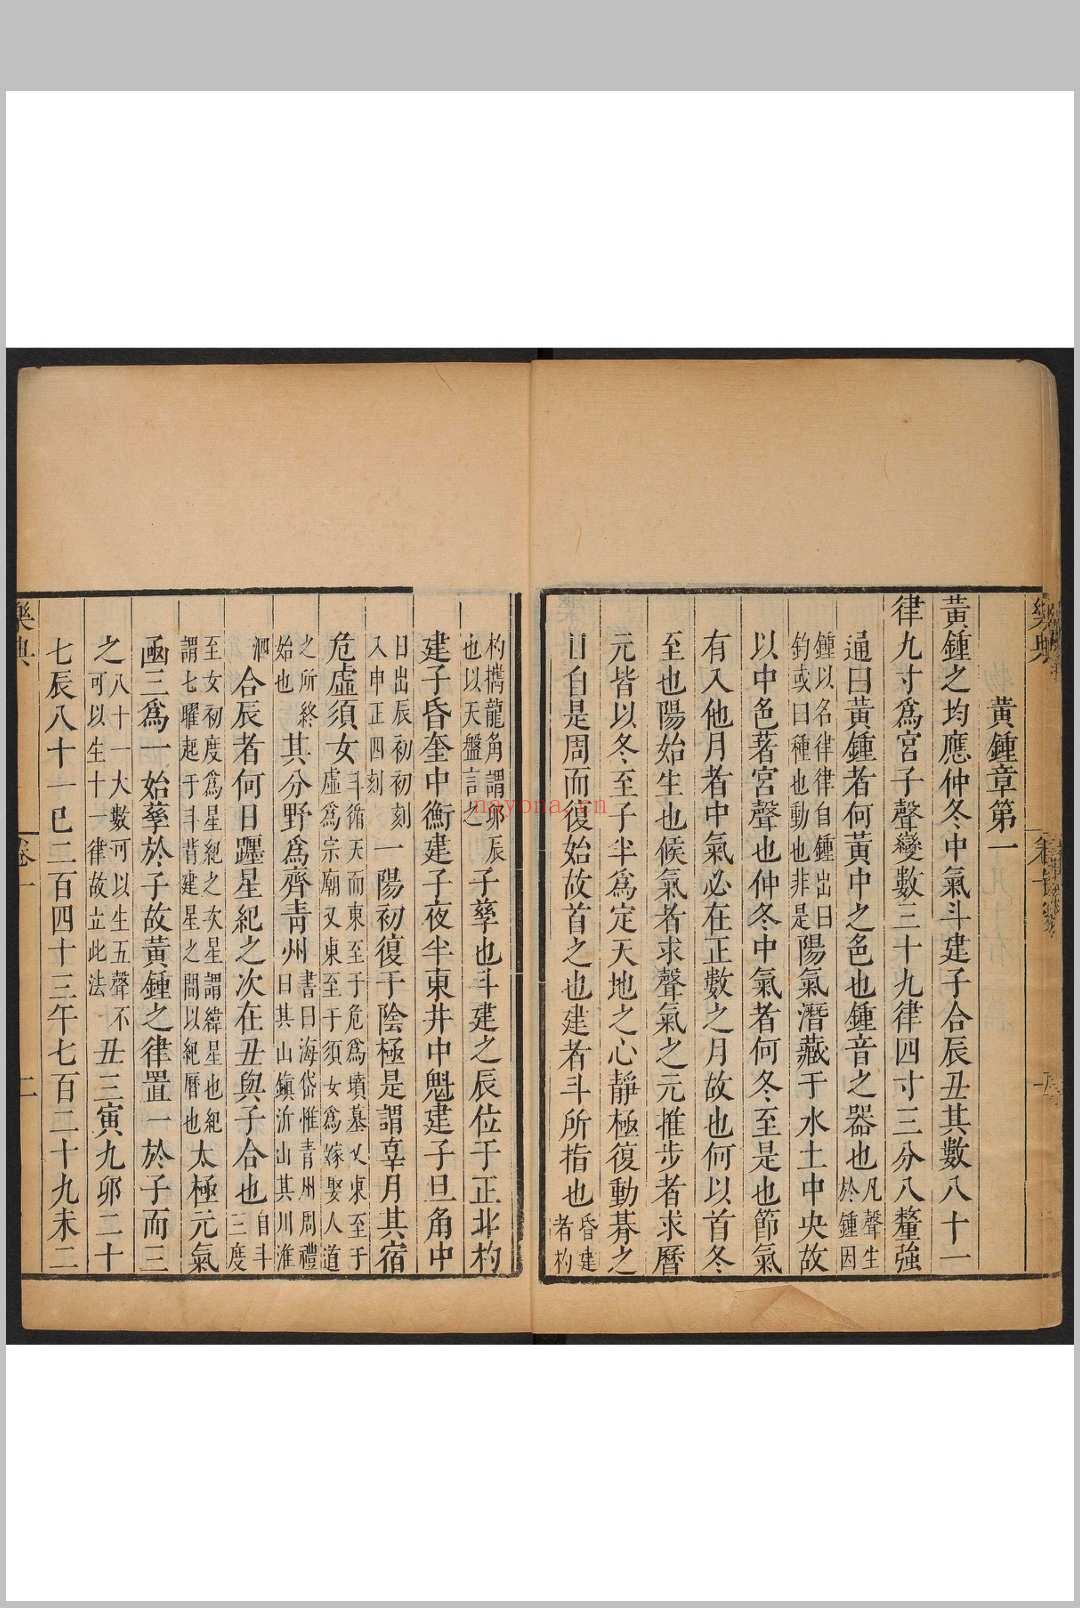 樂典
卷一
黃鍾章第一
黃鍾之均應仲冬中氣斗建子合辰丑其數八十一
律九寸爲宮子聲變數三十九律四寸三分八釐強
通曰黃鍾者何黃中之色也鍾音之器也凡聲生於鍾因
鍾以名律律自鍾出曰鈞或曰種也動也非是陽氣潛藏于水土中央故
以中色著宮聲也仲冬中氣者何冬至是也節氣
有入他月者中氣必在正數之月故也何以首冬
至也陽始生也候氣者求聲氣之元推步者求曆
元皆以冬至子半爲定天地之心靜極復動朞之
日自是周而復始故首之也建者斗所指也昏建者杓
杓攜龍角謂卯辰也以天盤言之子孳也斗建之辰位于正北杓
建子昏奎中衡建子夜半東井中魁建子旦角中
日出辰初初刻入申正四刻一陽初復于陰極是謂辜月其宿
危虛須女斗循天而東至于危爲墳墓又東至于虛爲宗廟又東至于須女爲嫁娶人道
之所終始也其分野爲齊青州書曰海岱惟青州周禮曰其山鎮沂山其川淮
泗合辰者何日躔星紀之次在丑與子合也自斗三度
至女初度爲星紀之次星謂緯星也紀謂七曜起于斗背建星之間以紀曆也太極元氣
函三爲一始孳於子故黃鍾之律置一於子而三
之八十一大數可以生五聲不可以生十一律故立此法丑三寅九卯二十
七辰八十一巳二百四十三午七百二十九未二
樂典
卷一
二
nayona.cn